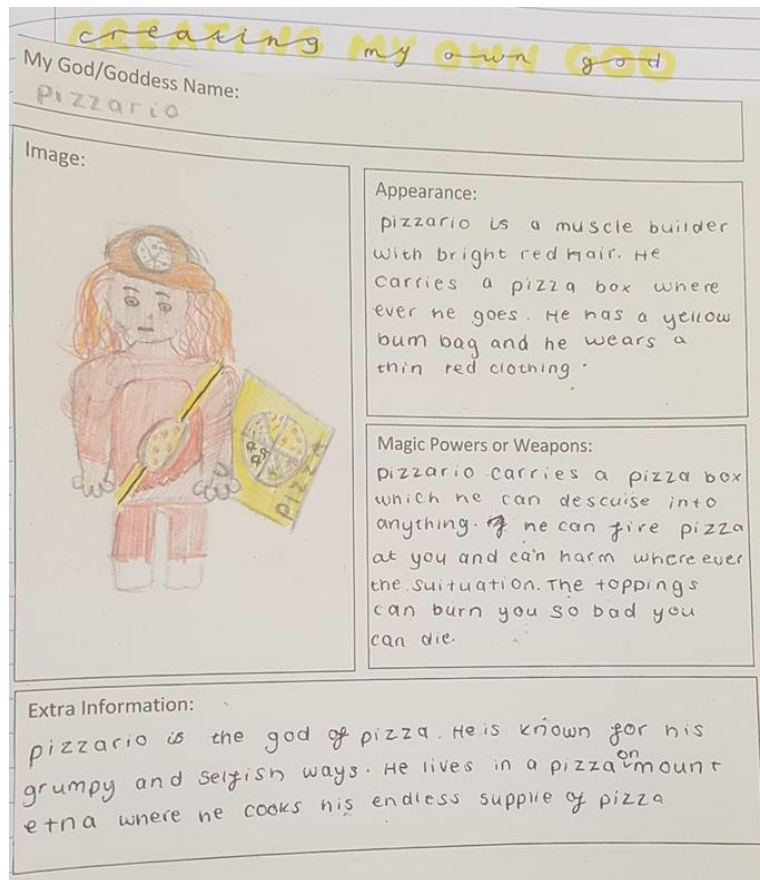 creating my own god
My God/Goddess Name:
pizzario
Image:
pizza
Appearance:
pizzario is a muscle builder
with bright red hair. He
carries a pizza box where
ever he goes. He has a yellow
bum bag and he wears a
thin red clothing.
Magic Powers or Weapons:
pizzario carries a pizza box
which he can descuise into
anything. he can fire pizza
at you and can harm where ever
the suituation. The toppings
can burn you so bad you
can die.
Extra Information:
pizzario is the god of pizza. He is known for his
grumpy and selfish ways. He lives in a pizza on mount
etna where he cooks his endless supplie of pizza